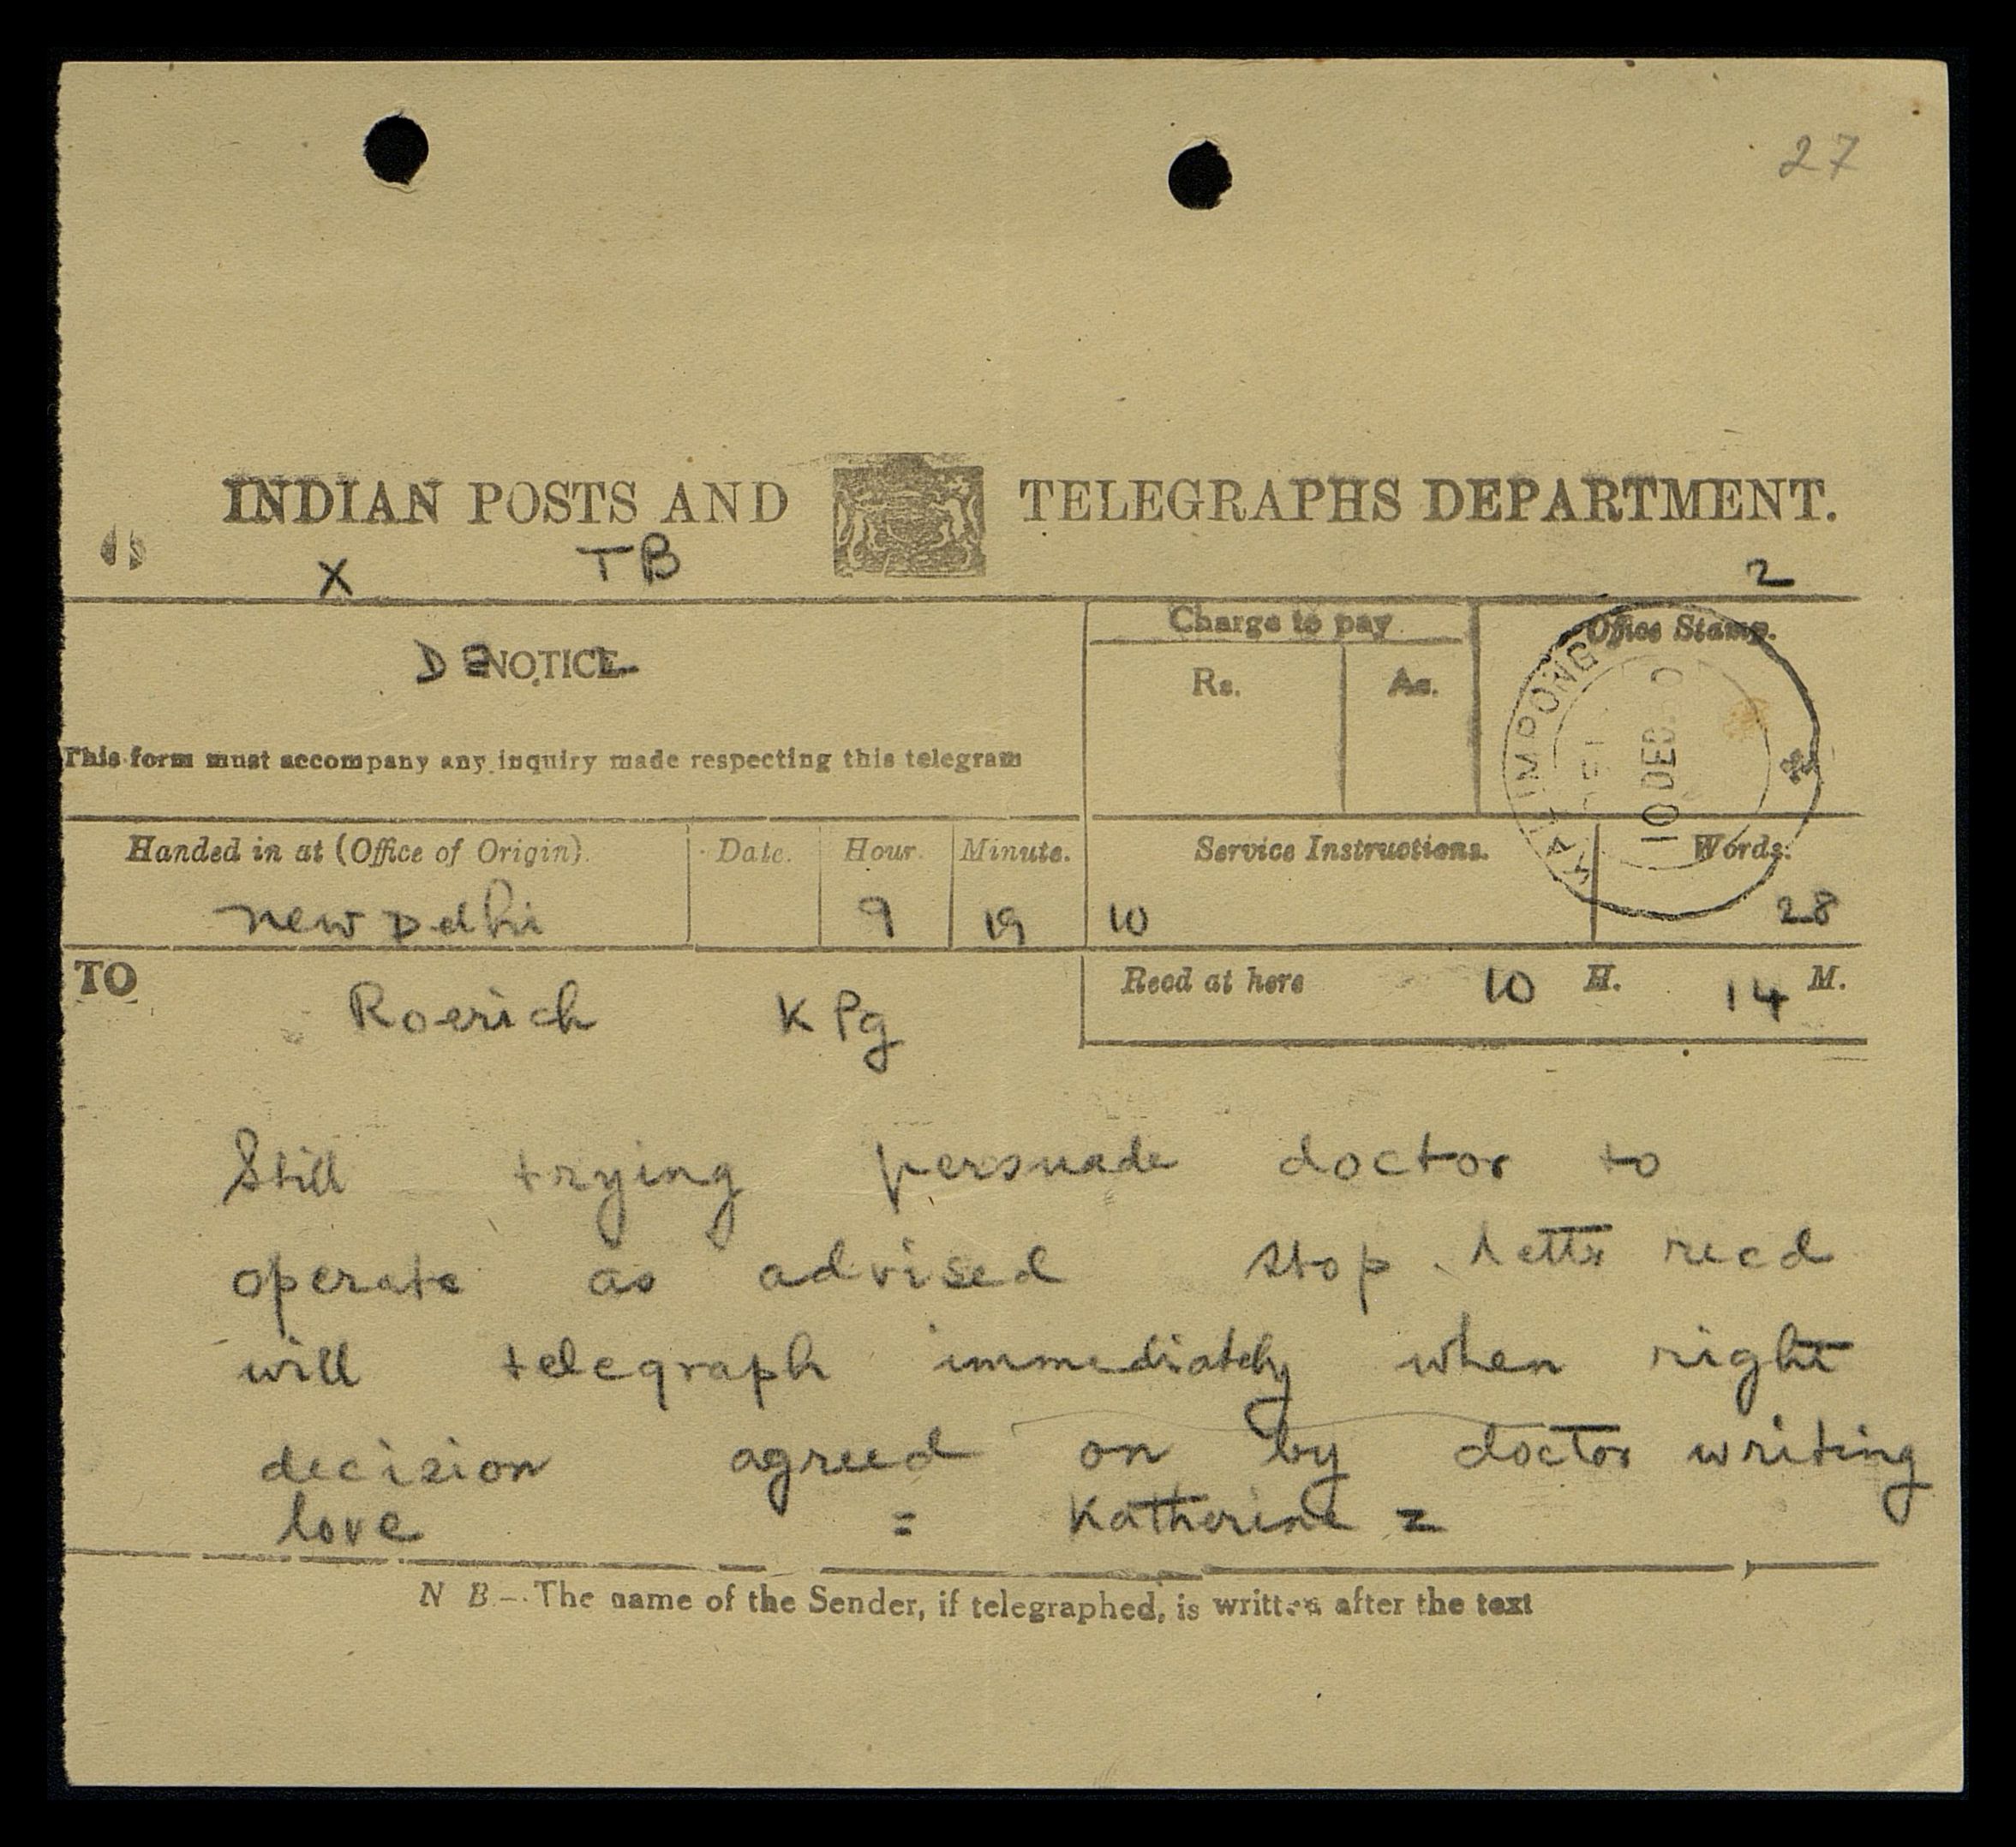 27
INDIAN POSTS AND TELEGRAPHS DEPARTMENT.
X TB 2
NOTICE
Charge to pay
Office Stamp.
Rs. As.
KALIMPONG
10 DEC. 50
This form must accompany any inquiry made respecting this telegram
Handed in at (Office of Origin). Date. Hour. Minute. Service Instructions. Words.
New Delhi 9 19 10 28
TO Roerich KPg
Recd at here 10 H. 14 M.
Still trying persuade doctor to
operate as advised stop letter recd
will telegraph immediately when right
decision agreed on by doctor writing
love = Katherine =
N B.—The name of the Sender, if telegraphed, is written after the text